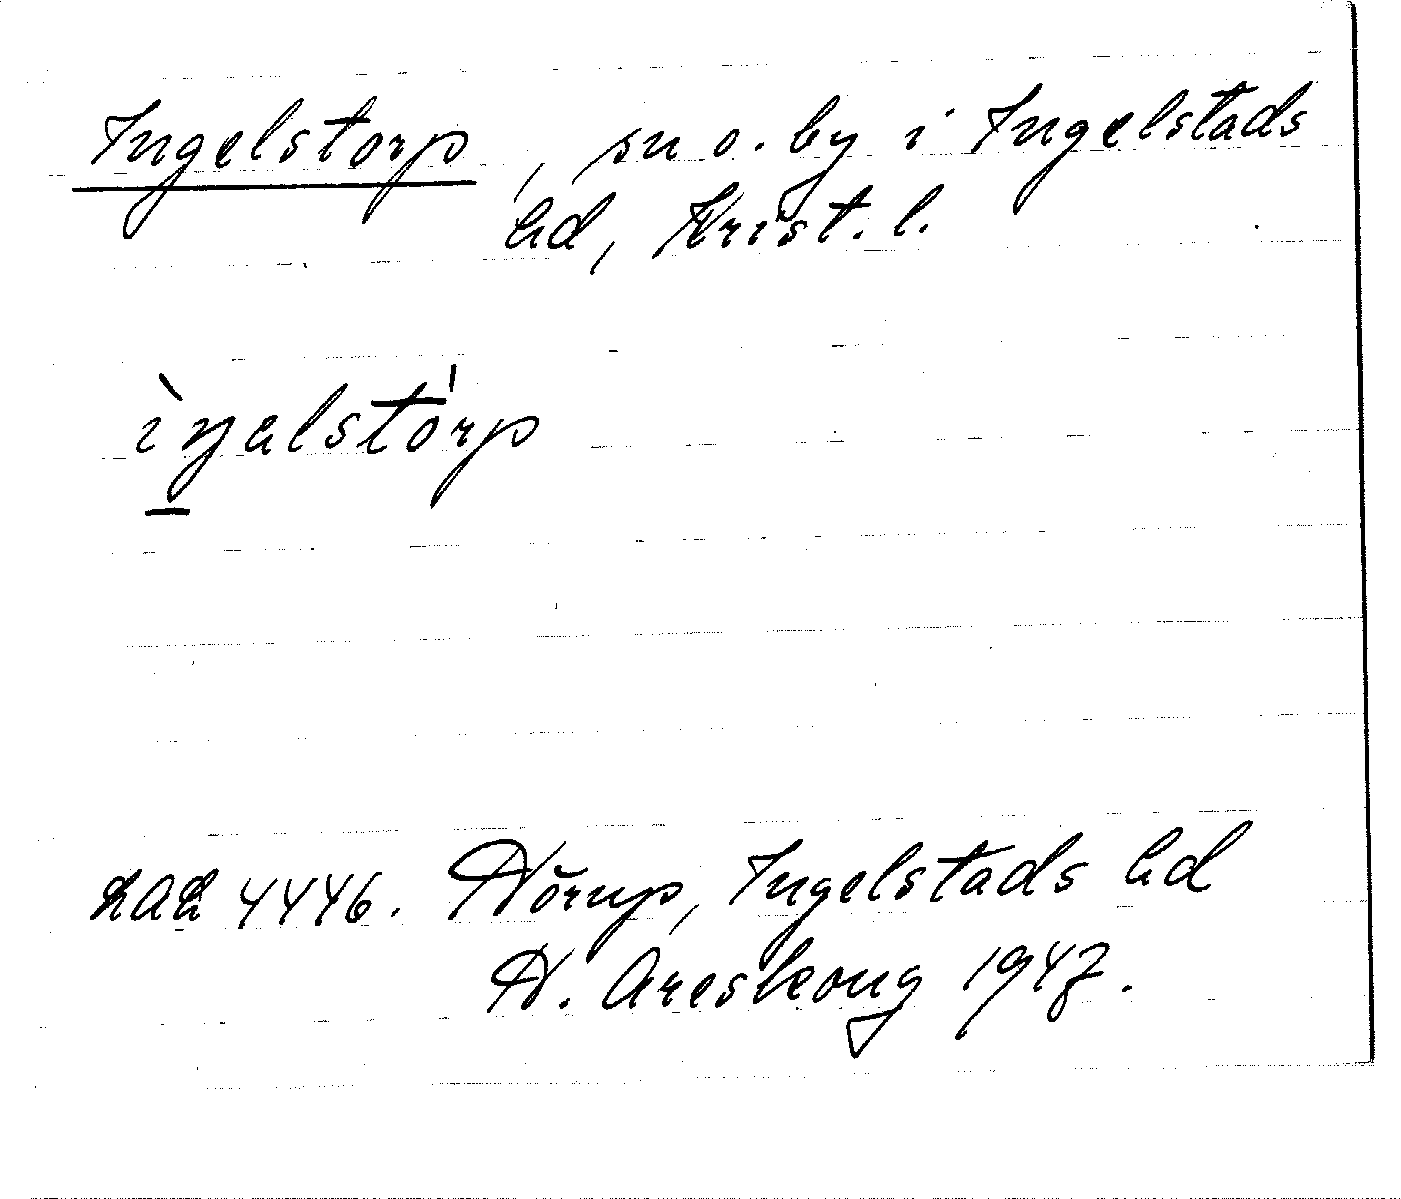 Ingelstorp, sn o. by i Ingelstads
hd, Krist. l.
ìŋalstórp
LAL 4446. Hörup, Ingelstads hd
H. Areskoug 1947.